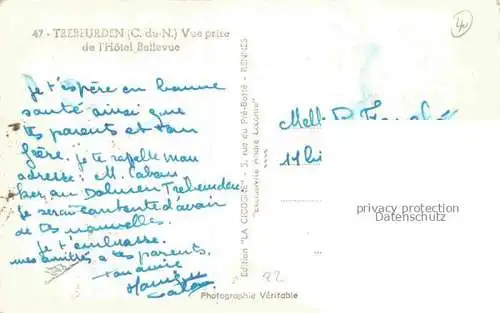 47 - TREBEURDEN (C. du-N.) Vue prise
de l'Hôtel Bellevue
je t'espère en bonne
santé ainsi que
tes parents et ton
frère. je te rappelle mon
adresse: M. Caban
Ker an Dolmen Trebeurden.
je serai contente d'avoir
de tes nouvelles.
je t'embrasse.
mes amitiés a tes parents.
ton amie
Edition "LA CIGOGNE" - 5, rue du Pré-Botté - RENNES
"Exclusivité André Lecomte"
Photographie Véritable
Melle
11
privacy protection
Datenschutz
22